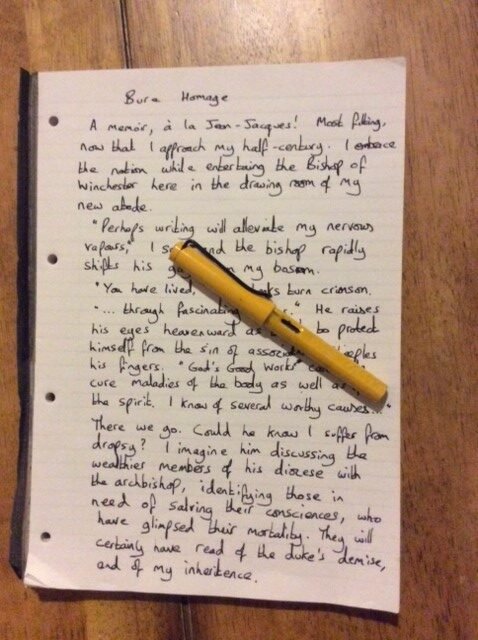 Bura Homage
A memoir, à la Jean-Jacques! Most fitting,
now that I approach my half-century. I embrace
the notion while entertaing the Bishop of
Winchester here in the drawing room of my
new abode.
"Perhaps writing will alleviate my nervous
vapours," I and the bishop rapidly
shifts his my bosom.
"You have lived, burn crimson.
"... through fascinating He raises
his eyes heavenward as to protect
himself from the sin of
his fingers. "God's Good Works"
cure maladies of the body as well as
the spirit. I know of several worthy causes..."
There we go. Could he know I suffer from
dropsy? I imagine him discussing the
wealthier members of his diozese with
the archbishop, identifying those in
need of salving their consciences, who
have glimpsed their mortality. They will
certainly have read of the duke's demise,
and of my inheritence.